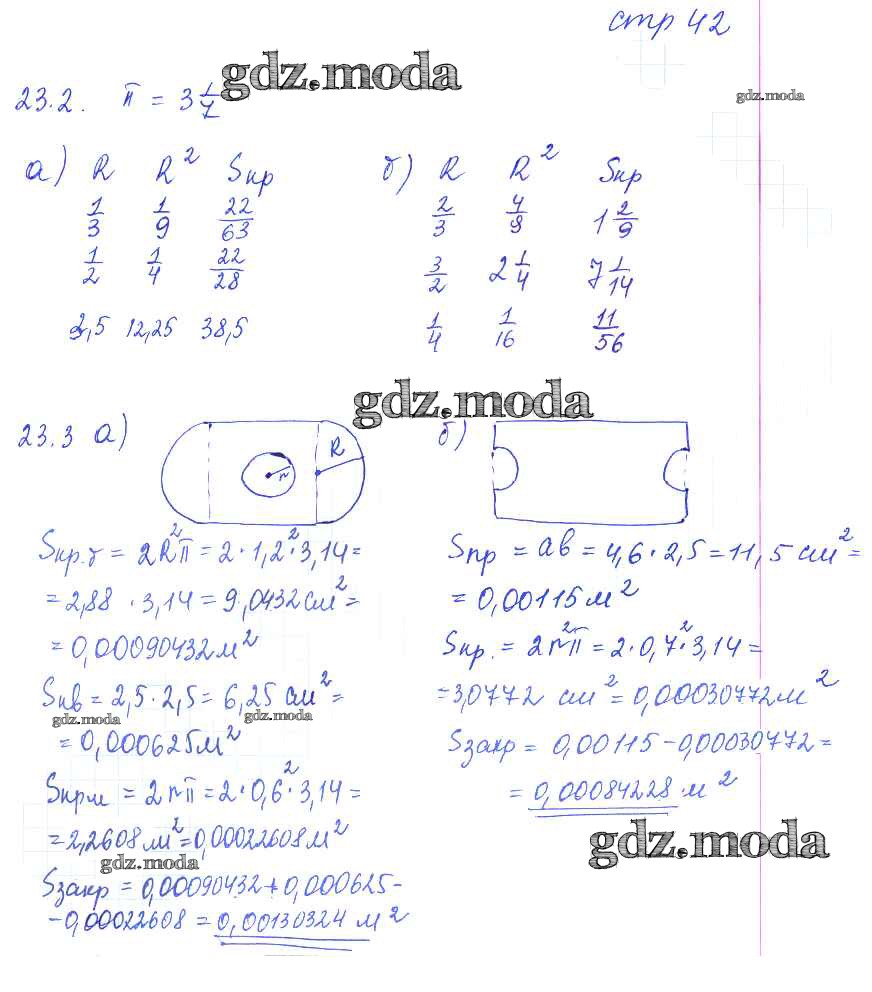 стр 42
gdz.moda
gdz.moda
23.2. π = 3 1/7
а) R R² Sкр
1/3 1/9 22/63
1/2 1/4 22/28
3,5 12,25 38,5
б) R R² Sкр
2/3 4/9 1 2/9
3/2 2 1/4 7 1/14
1/4 1/16 11/56
gdz.moda
23.3 а)
R
r
Sкр.б = 2R²π = 2·1,2²·3,14 =
= 2,88 · 3,14 = 9,0432 см² =
= 0,00090432 м²
Sкв = 2,5·2,5 = 6,25 см² =
gdz.moda gdz.moda
= 0,000625 м²
Sкрм = 2rπ = 2·0,6²·3,14 =
= 2,2608 м² = 0,00022608 м²
gdz.moda
Sзакр = 0,00090432 + 0,000625 -
- 0,00022608 = 0,00130324 м²
б)
Sпр = ab = 4,6·2,5 = 11,5 см² =
= 0,00115 м²
Sкр. = 2r²π = 2·0,7²·3,14 =
= 3,0772 см² = 0,00030772 м²
Sзакр = 0,00115 - 0,00030772 =
= 0,00084228 м²
gdz.moda